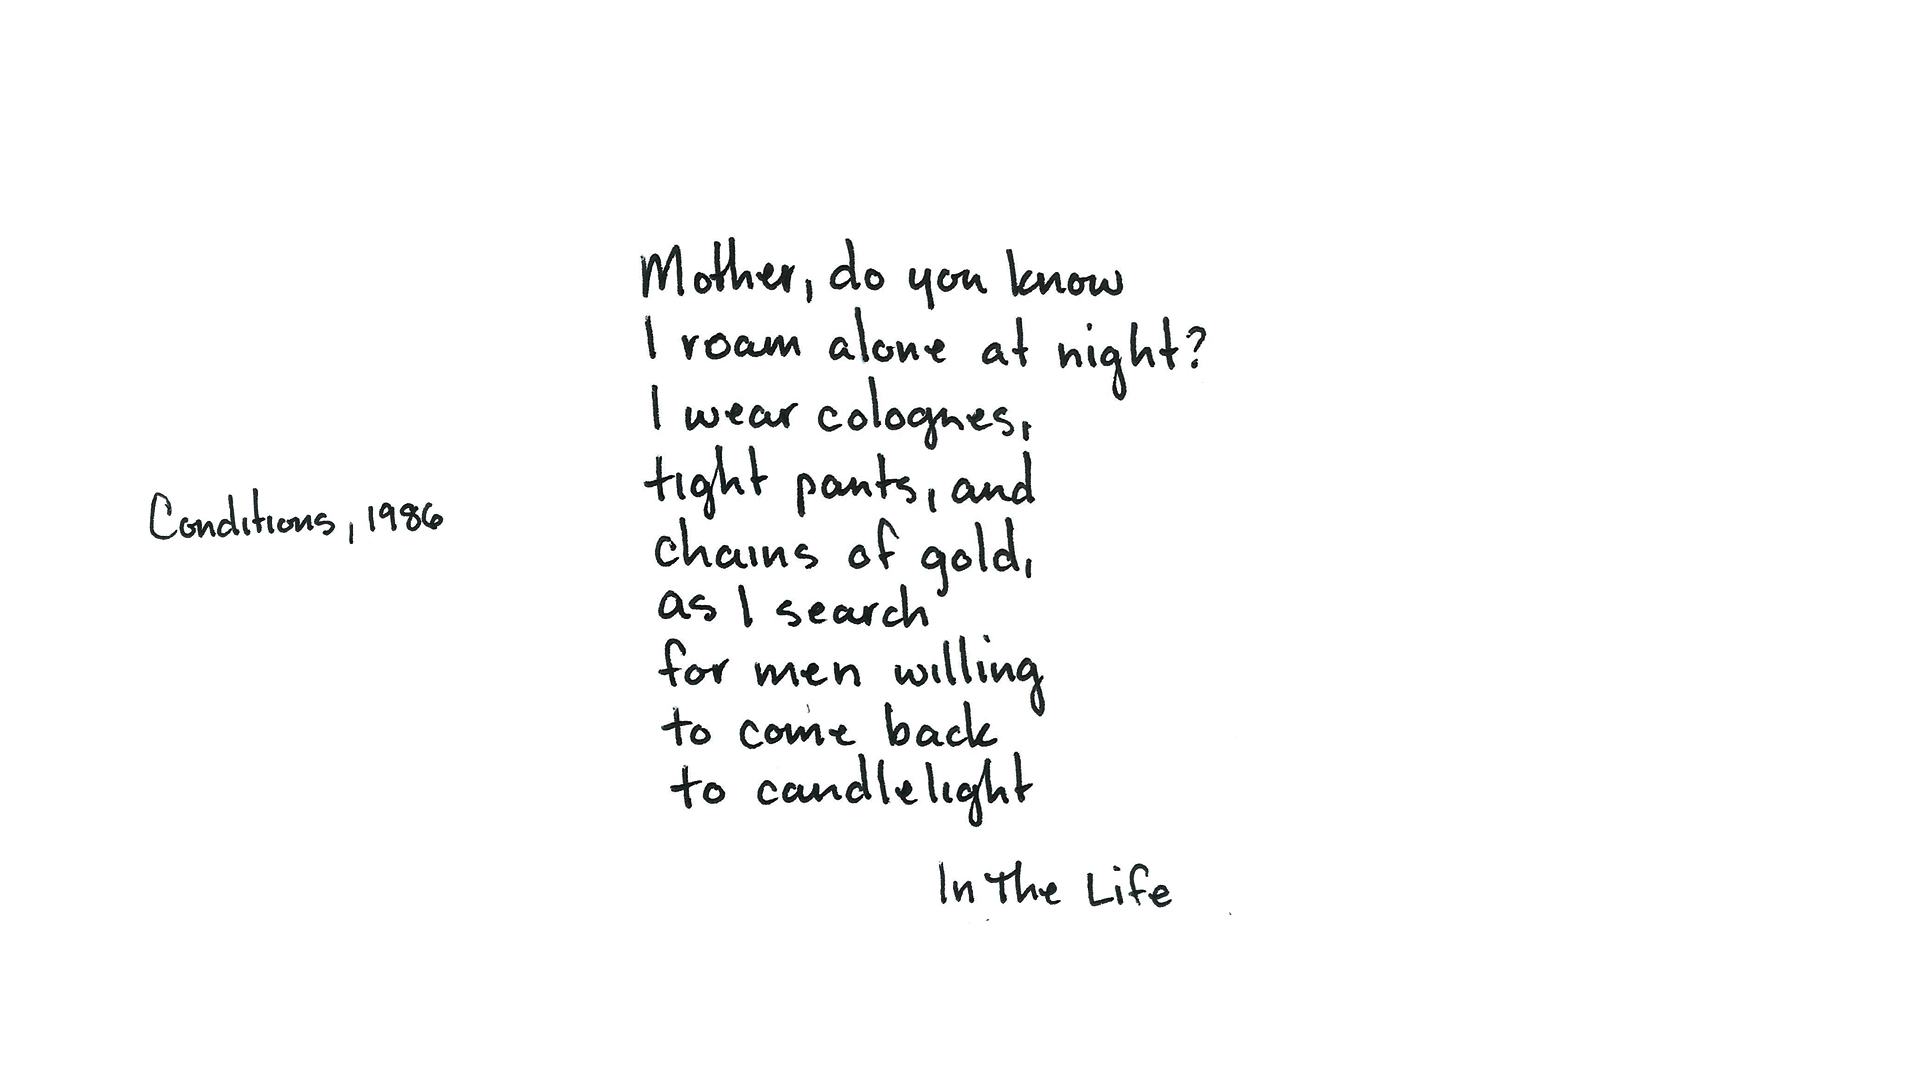 Conditions, 1986
Mother, do you know
I roam alone at night?
I wear colognes,
tight pants, and
chains of gold,
as I search
for men willing
to come back
to candlelight
In The Life